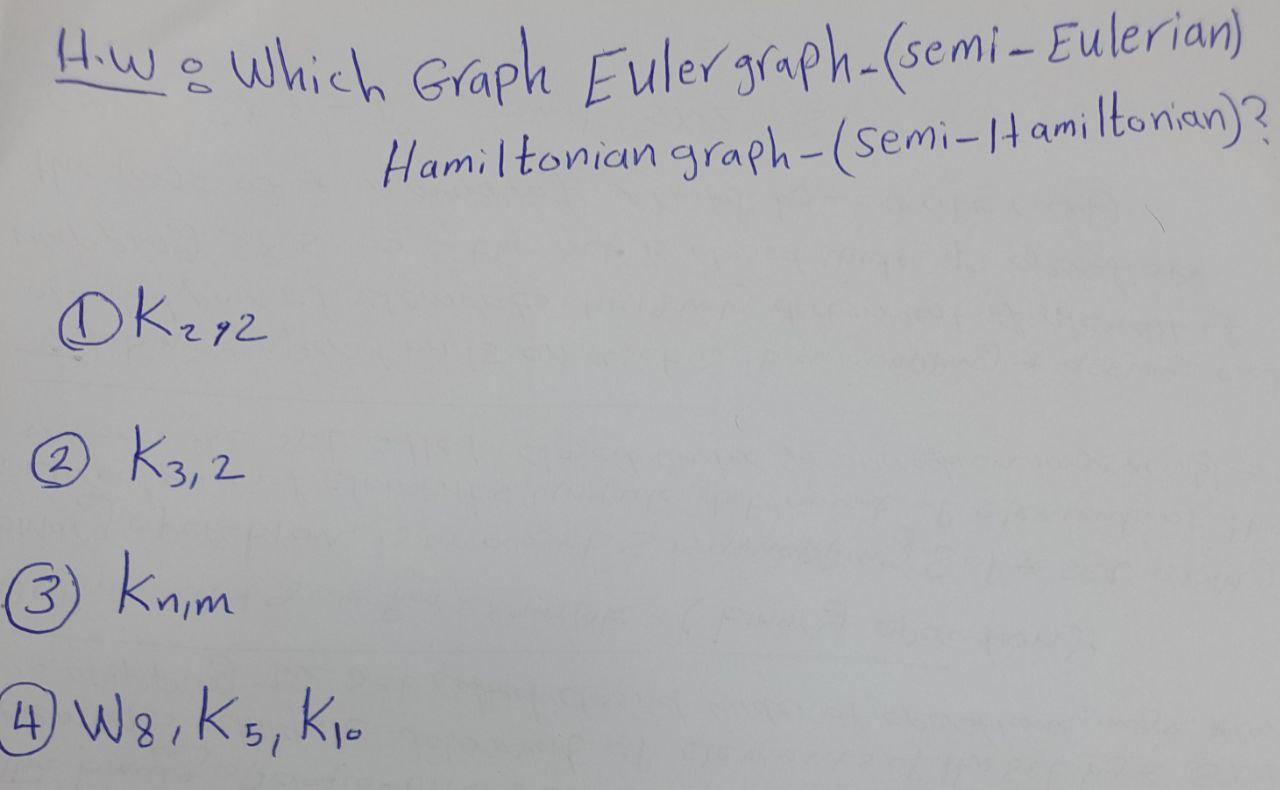 H.W : Which Graph Euler graph-(semi-Eulerian)
Hamiltonian graph-(semi-Hamiltonian)?
① K₂,₂
② K₃,₂
③ Kn,m
④ W₈, K₅, K₁₀